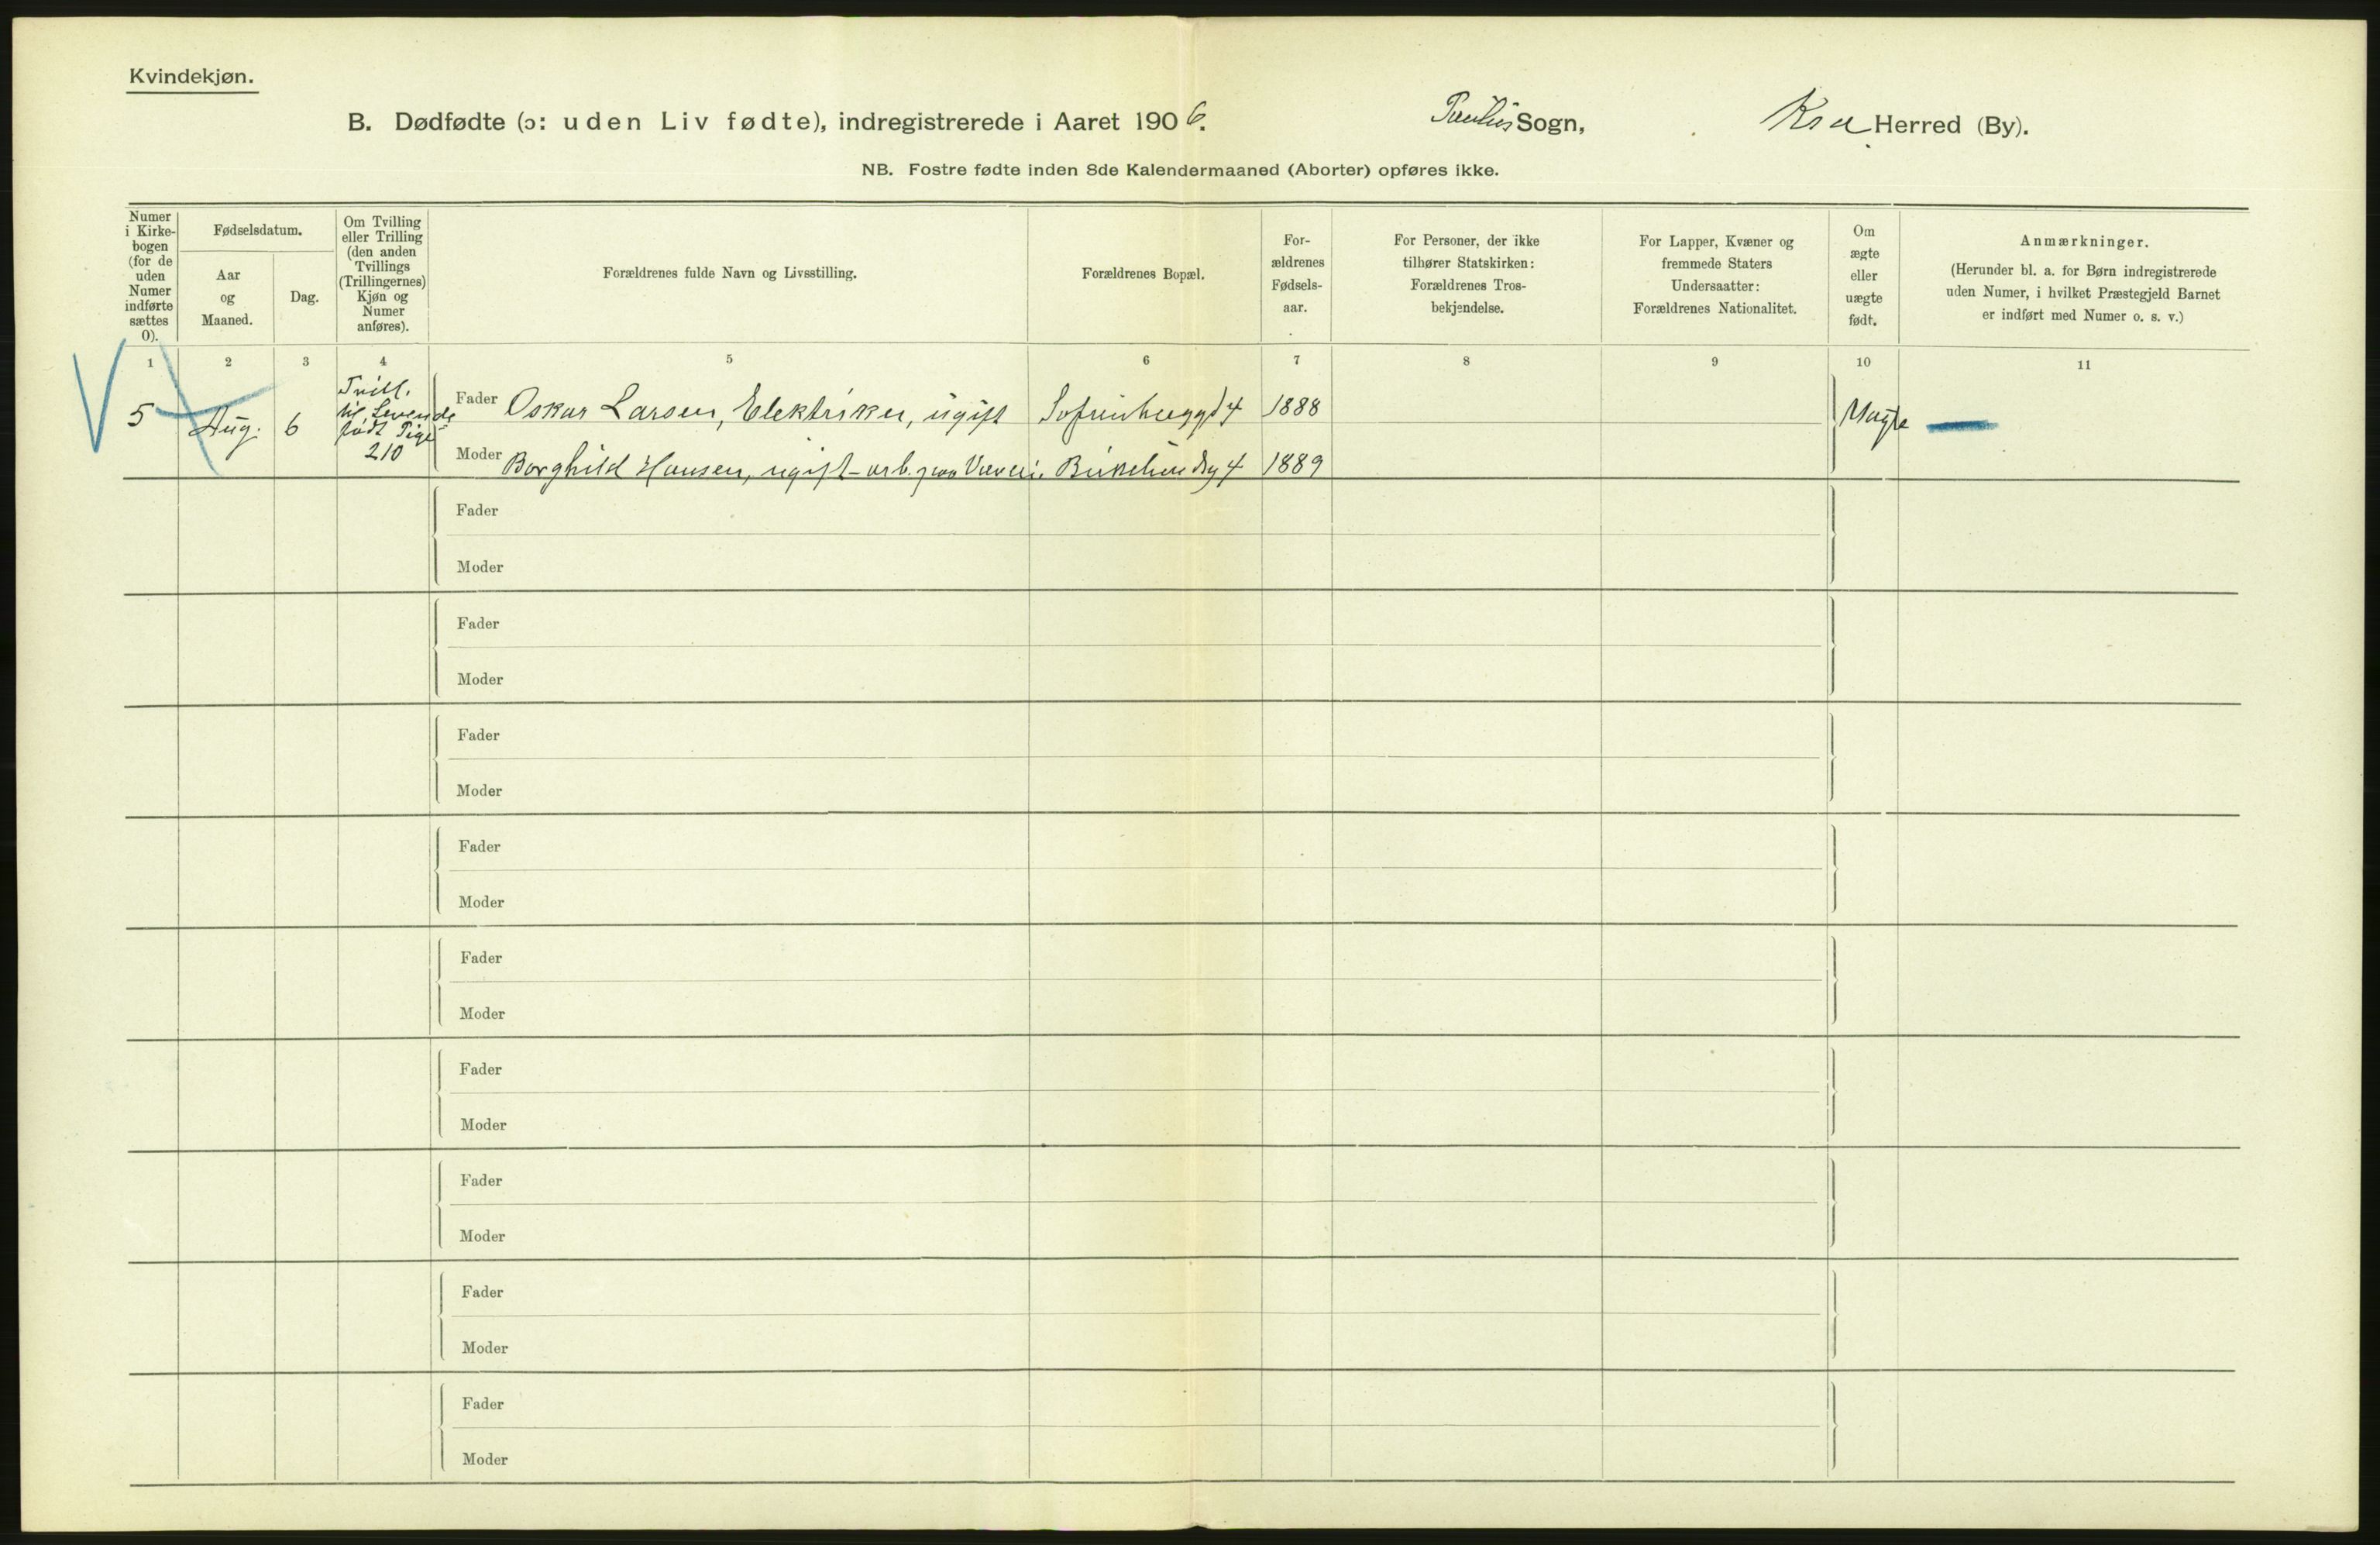 Kvindekjøn.
B. Dødfødte (ɔ: uden Liv fødte), indregistrerede i Aaret 1906. Paulus Sogn, Kra Herred (By).
NB. Fostre fødte inden 8de Kalendermaaned (Aborter) opføres ikke.
Numer i Kirke-bogen (for de uden Numer indførte sættes 0).
Fødselsdatum.
Aar og Maaned.
Dag.
Om Tvilling eller Trilling (den anden Tvillings (Trillingernes) Kjøn og Numer anføres).
Forældrenes fulde Navn og Livsstilling.
Forældrenes Bopæl.
For-ældrenes Fødsels-aar.
For Personer, der ikke tilhører Statskirken: Forældrenes Tros-bekjendelse.
For Lapper, Kvæner og fremmede Staters Undersaatter: Forældrenes Nationalitet.
Om ægte eller uægte født.
Anmærkninger.
(Herunder bl. a. for Børn indregistrerede uden Numer, i hvilket Præstegjeld Barnet er indført med Numer o. s. v.)
1 2 3 4 5 6 7 8 9 10 11
5 Aug. 6
Tvill. til Levende født Pige 210
Fader Oskar Larsen, Elektriker, ugift 4 1888
Uægte
Moder Borghild Hansen, ugift - arb. paa Væveri. 4 1889
Fader
Moder
Fader
Moder
Fader
Moder
Fader
Moder
Fader
Moder
Fader
Moder
Fader
Moder
Fader
Moder
Fader
Moder